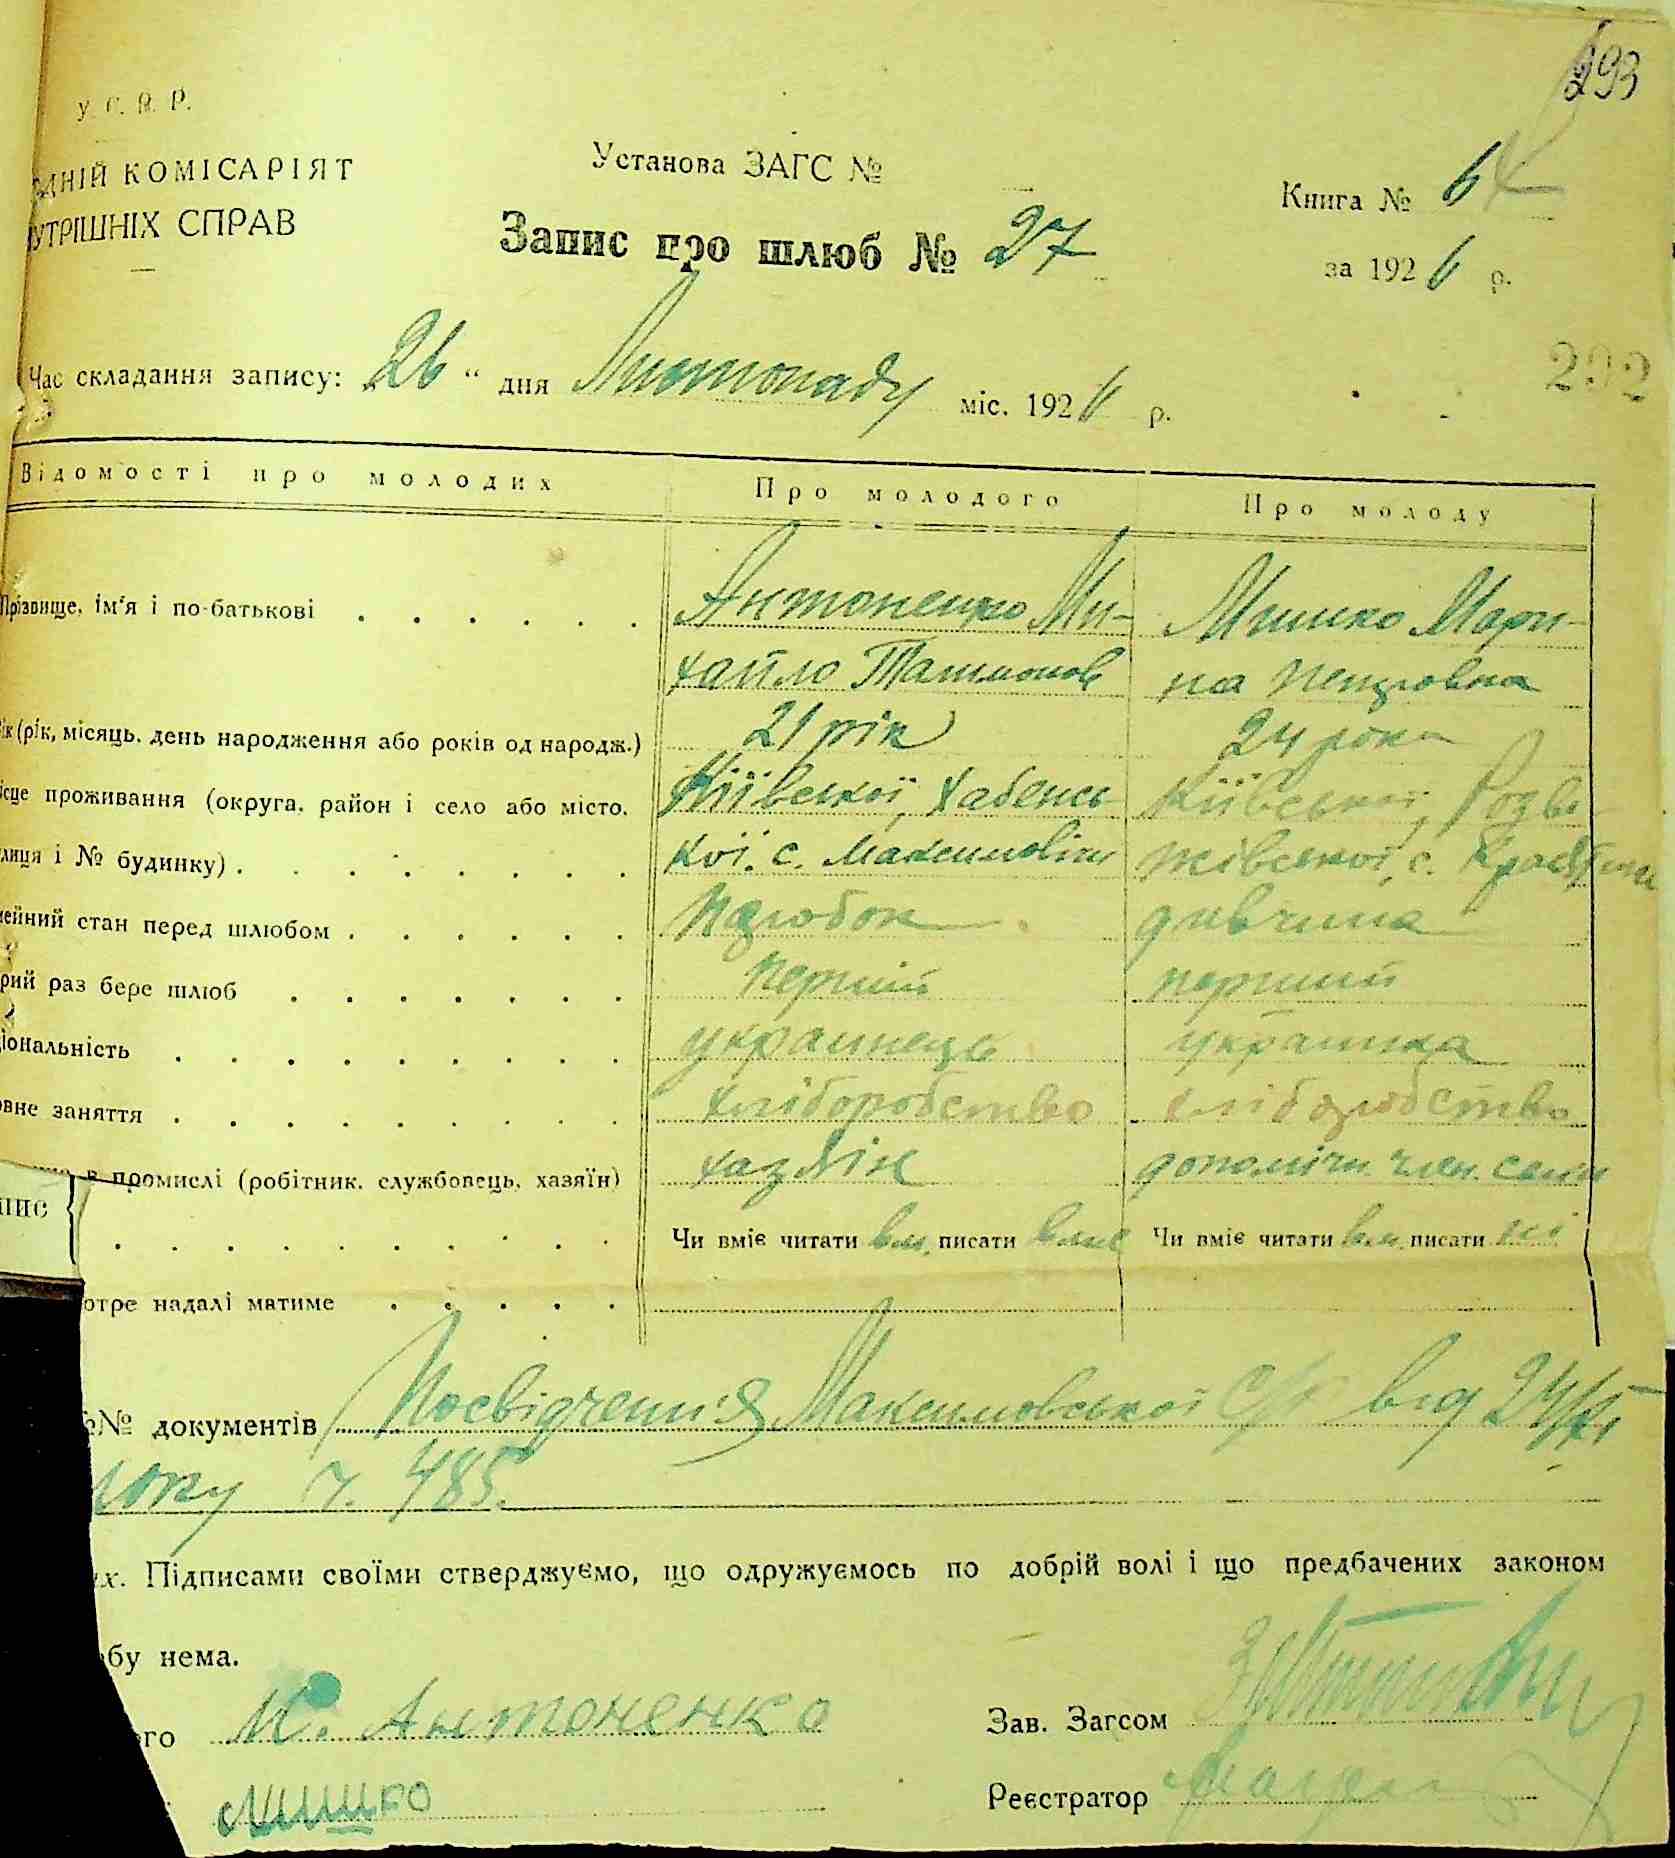 293
У. С. Р. Р.
ДНІЙ КОМІСАРІЯТ
УТРІШНІХ СПРАВ
Установа ЗАГС №
Книга № 6
Запис про шлюб № 27
за 1926 р.
Час складання запису: „26“ дня Листопаду міс. 1926 р.
292
Відомості про молодих Про молодого Про молоду
Прізвище, ім'я і по-батькові Антоненко Ми- Мишко Мари-
хайло на Петровна
ік (рік, місяць, день народження або років од народж.) 21 рік 24 роки
ісце проживання (округа, район і село або місто, Київської, Хабенсь Київської, Розва
лиця і № будинку) кої, с. Максимовичі жівської, с.
ейний стан перед шлюбом парубок дивчина
рий раз бере шлюб перший перший
іональність украинець украинка
овне заняття хліборобство хліборобство
в промислі (робітник, службовець, хазяїн) хазяїн допоміжн. член. семи
пис
Чи вміє читати вм. писати вміє Чи вміє читати вм. писати ні
отре надалі матиме
№№ документів Посвідчення Максимовської с/р від 24/XI
року ч. 485.
их. Підписами своїми стверджуємо, що одружуємось по добрій волі і що предбачених законом
бу нема.
ого М. Антоненко Зав. Загсом
Мишко Реєстратор